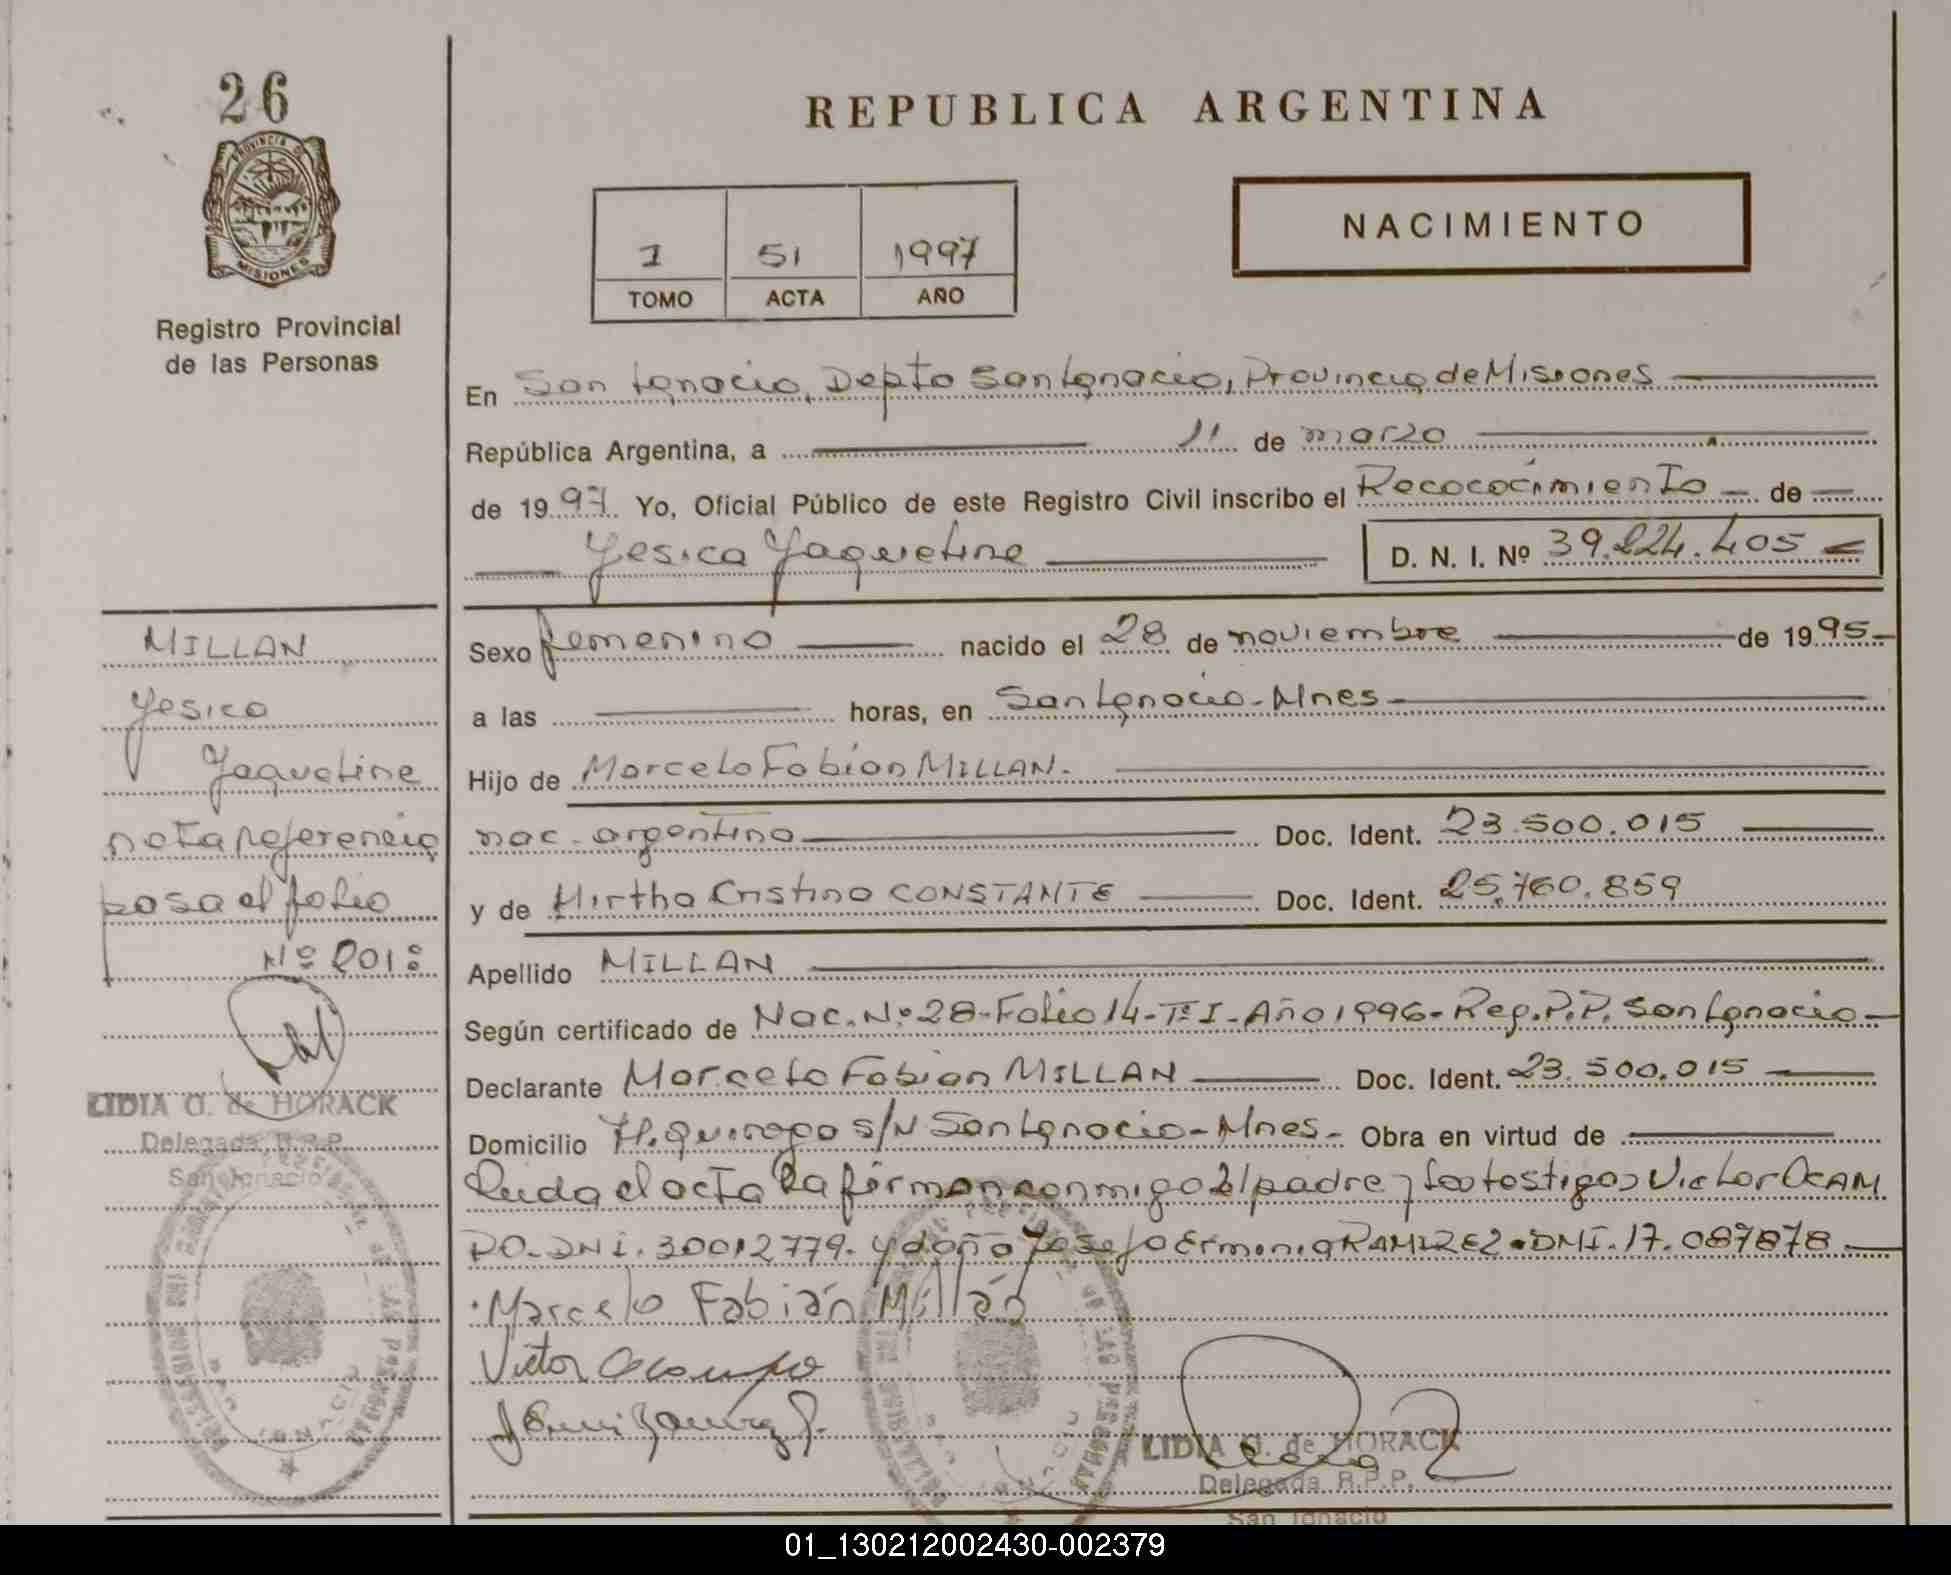 26
PROVINCIA DE
MISIONES
Registro Provincial
de las Personas
REPUBLICA ARGENTINA
1 51 1997
TOMO ACTA AÑO
NACIMIENTO
En San Ignacio, Depto San Ignacio, Provincia de Misiones
República Argentina, a 11 de marzo
de 1997 Yo, Oficial Público de este Registro Civil inscribo el Recococimiento de
Yesica Yaqueline D. N. I. Nº 39.224.405
Sexo femenino nacido el 28 de noviembre de 1995
a las horas, en San Ignacio - Mnes
Hijo de Marcelo Fabian MILLAN.
nac. argentino Doc. Ident. 23.500.015
y de Mirtha Cristina CONSTANTE Doc. Ident. 25.760.859
Apellido MILLAN
Según certificado de Nac. Nº 28 - Folio 14 - Tº I - Año 1996 - Reg. P. P. San Ignacio
Declarante Marcelo Fabian MILLAN Doc. Ident. 23.500.015
Domicilio H. Quiroga S/N San Ignacio - Mnes - Obra en virtud de
Leida el acta la firman conmigo el padre y los testigos Victor OCAM
PO - DNI. 30012779. y doña Josefa Ermenia RAMIREZ - DNI. 17.087878
Marcelo Fabián Millán
Victor Ocampo
LIDIA O. de HORACK
Delegada R.P.P.
San Ignacio
MILLAN
Yesica
Yaqueline
nota referencia
pasa al folio
Nº 201:
LIDIA O. de HORACK
Delegada R.P.P.
San Ignacio
01_130212002430-002379